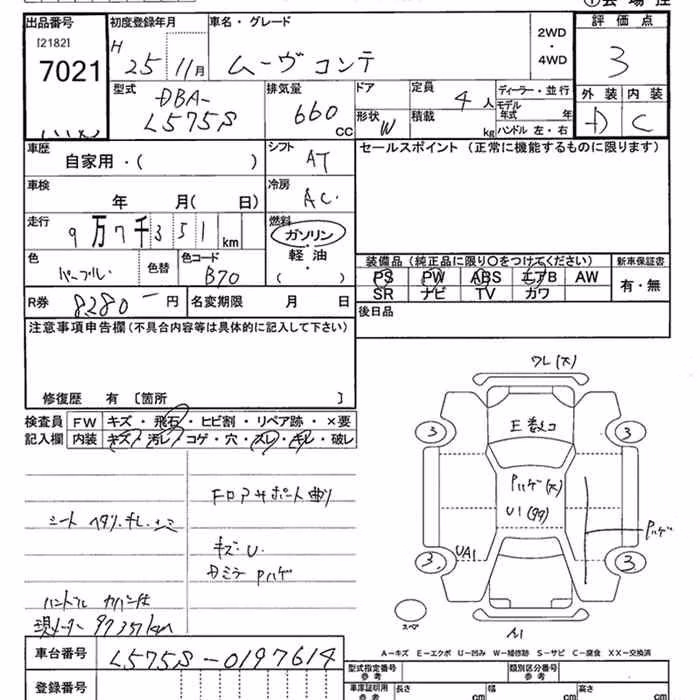 出品番号 初度登録年月 車名・グレード 2WD・4WD 評価点
[2182]
7021 H 25 11月 ムーヴ コンテ 3
型式 排気量 ドア 定員 ディーラー・並行 外装 内装
DBA-
L575S 660 CC 4人 モデル年式 年 D C
形状 W 積載 kg ハンドル 左・右
車歴 シフト セールスポイント (正常に機能するものに限ります)
自家用・( ) AT
車検 冷房
年 月( 日) AC
走行 燃料
9万7千351 km ガソリン・軽油
色 色替 色コード ( )
パープル B70
装備品 (純正品に限り〇をつけてください) 新車保証書
PS PW ABS エアB AW 有・無
SR ナビ TV カワ
R券 8280 円 名変期限 月 日 後日品
注意事項申告欄 (不具合内容等は具体的に記入して下さい)
修復歴 有 〔箇所 〕
検査員 FW キズ・飛石・ヒビ割・リペア跡・×要
記入欄 内装 キズ・汚レ・コゲ・穴・スレ・キレ・破レ
ワレ(大)
3 3
Pハゲ(大)
U1
Pハゲ
UA1
3 3
スペア
A1
フロアサポート曲り
シート
キズ・U
Pハゲ
ハンドル
現メーター 97351km
A-キズ E-エクボ U-凹み W-補修跡 S-サビ C-腐食 XX-交換済
車台番号 L575S-0197614 型式指定番号 参考 類別区分番号 参考
登録番号 車庫証明用 参考 長さ cm 幅 cm 高さ cm